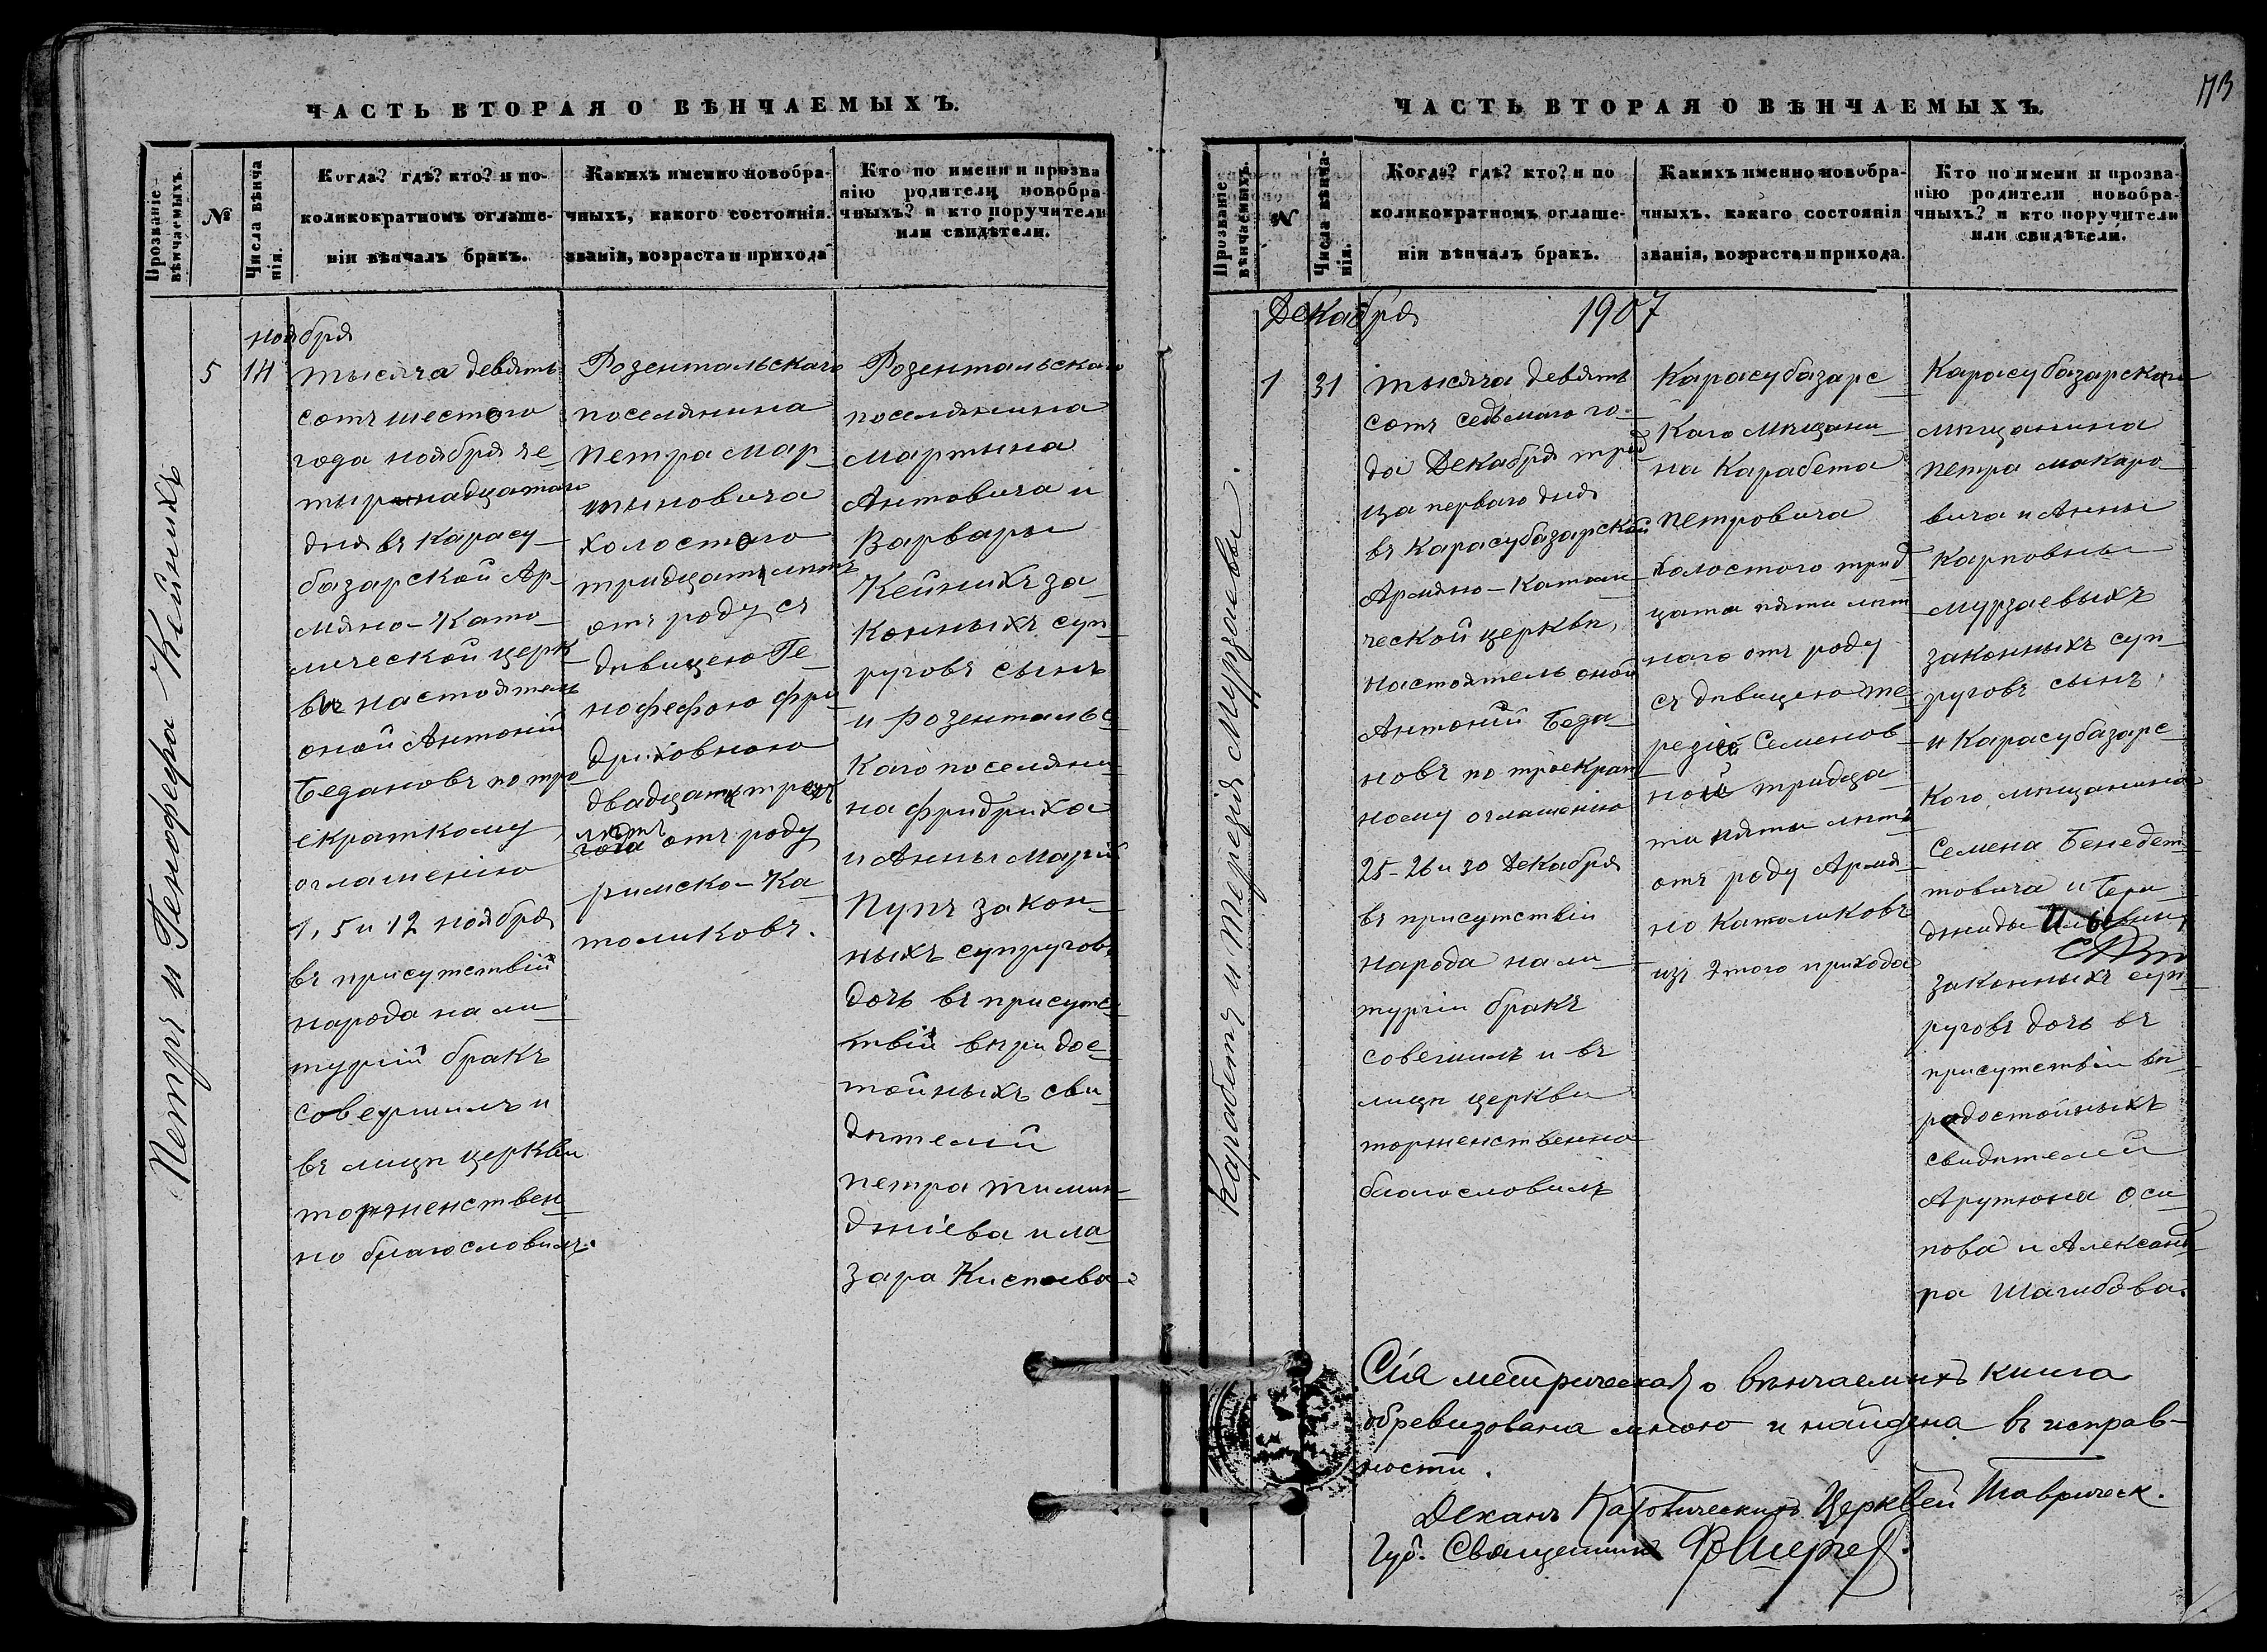 173
ЧАСТЬ ВТОРАЯ О ВѢНЧАЕМЫХЪ.
Прозваніе вѣнчаемыхъ.
№
Числа вѣнчанія.
Когда? гдѣ? кто? и по-
коликократномъ оглаше-
ніи вѣнчалъ бракъ.
Какихъ именно новобра-
чныхъ, какого состоянія.
званія, возраста и прихода
Кто по имени и прозва
нію родители новобра-
чныхъ? и кто поручители
или свидѣтели.
Петръ и Генофефа Кейнихъ
ноября
5
14
тысяча девять
сотъ шестого
года ноября че-
тырнадцатаго
дня въ Карасу-
базарской Ар-
мяно-Като-
лической церк-
ви настоятель
оной Антоній
Бедановъ по тро
екраткому
оглашенію
1, 5 и 12 ноября
въ присутствіи
народа на ли-
тургіи бракъ
совершилъ и
въ лицѣ церкви
торжествен-
но благословилъ.
Розентальскаго
поселянина
Петра Мар-
тыновича
холостого
тридцати лѣтъ
отъ роду съ
дѣвицею Ге-
нофефою Фри-
дриховною
двадцати трехъ
лѣтъ
года отъ роду
римско-Ка-
толиковъ.
Розентальскаго
поселянина
Мартына
Антовича и
Варвары
Кейнихъ за-
конныхъ суп-
руговъ сынъ
и Розентальс-
каго поселяни-
на Фридриха
и Анны Маріи
Пупъ закон-
ныхъ супруговъ
дочь въ присутс-
твіи вѣри дос-
тойныхъ сви-
дѣтелей
Петра Тимин-
джіева и Ла-
зара Киспоева
ЧАСТЬ ВТОРАЯ О ВѢНЧАЕМЫХЪ.
Прозваніе вѣнчаемыхъ.
№
Числа вѣнча-
нія.
Когда? гдѣ? кто? и по
коликократномъ оглаше-
ніи вѣнчалъ бракъ.
Какихъ именно новобра-
чныхъ. какаго состоянія
званія, возраста и прихода.
Кто по имени и прозва-
нію родители новобра-
чныхъ? и кто поручители
или свидѣтели.
Карабетъ и Терезія Мурзаевы.
Декабря 1907
1
31
тысяча девять
сотъ седьмаго го-
да Декабря трид
ца перваго дня
въ Карасубазарской
Армяно-Католи-
ческой церкви,
настоятель оной
Антоній Беда-
новъ по троекрат
ному оглашенію
25-26 и 30 Декабря
въ присутствіи
народа на ли-
тургіи бракъ
совешилъ и въ
лицѣ церкви
торжественно
благословилъ
Карасубазарс-
каго мѣщани-
на Карабета
Петровича
холостого трид
цати пяти лѣт
наго отъ роду
съ дѣвицею Те-
резіей Семенов-
ной тридца-
ти пяти лѣтъ
отъ роду Армя-
но Католиковъ
изъ этого прихода
Карасубазарскаго
мѣщанина
Петра Макаро-
вича и Анны
Карповны
Мурзаевыхъ
законныхъ суп-
руговъ сынъ,
и Карасубазарс-
кого мѣщанина
Семена Бенедет-
товича и
законныхъ суп-
руговъ дочь въ
присутствіи вѣ-
радостойныхъ
свидѣтелей
Арутюна Оси-
пова и Александ-
ра Шагибова.
Сія метрическая о вѣнчаемыхъ книга
обревизована мною и найдена въ исправ-
ности.
Деканъ Католическихъ Церквей Тавричеcк.
Губ. Священникъ